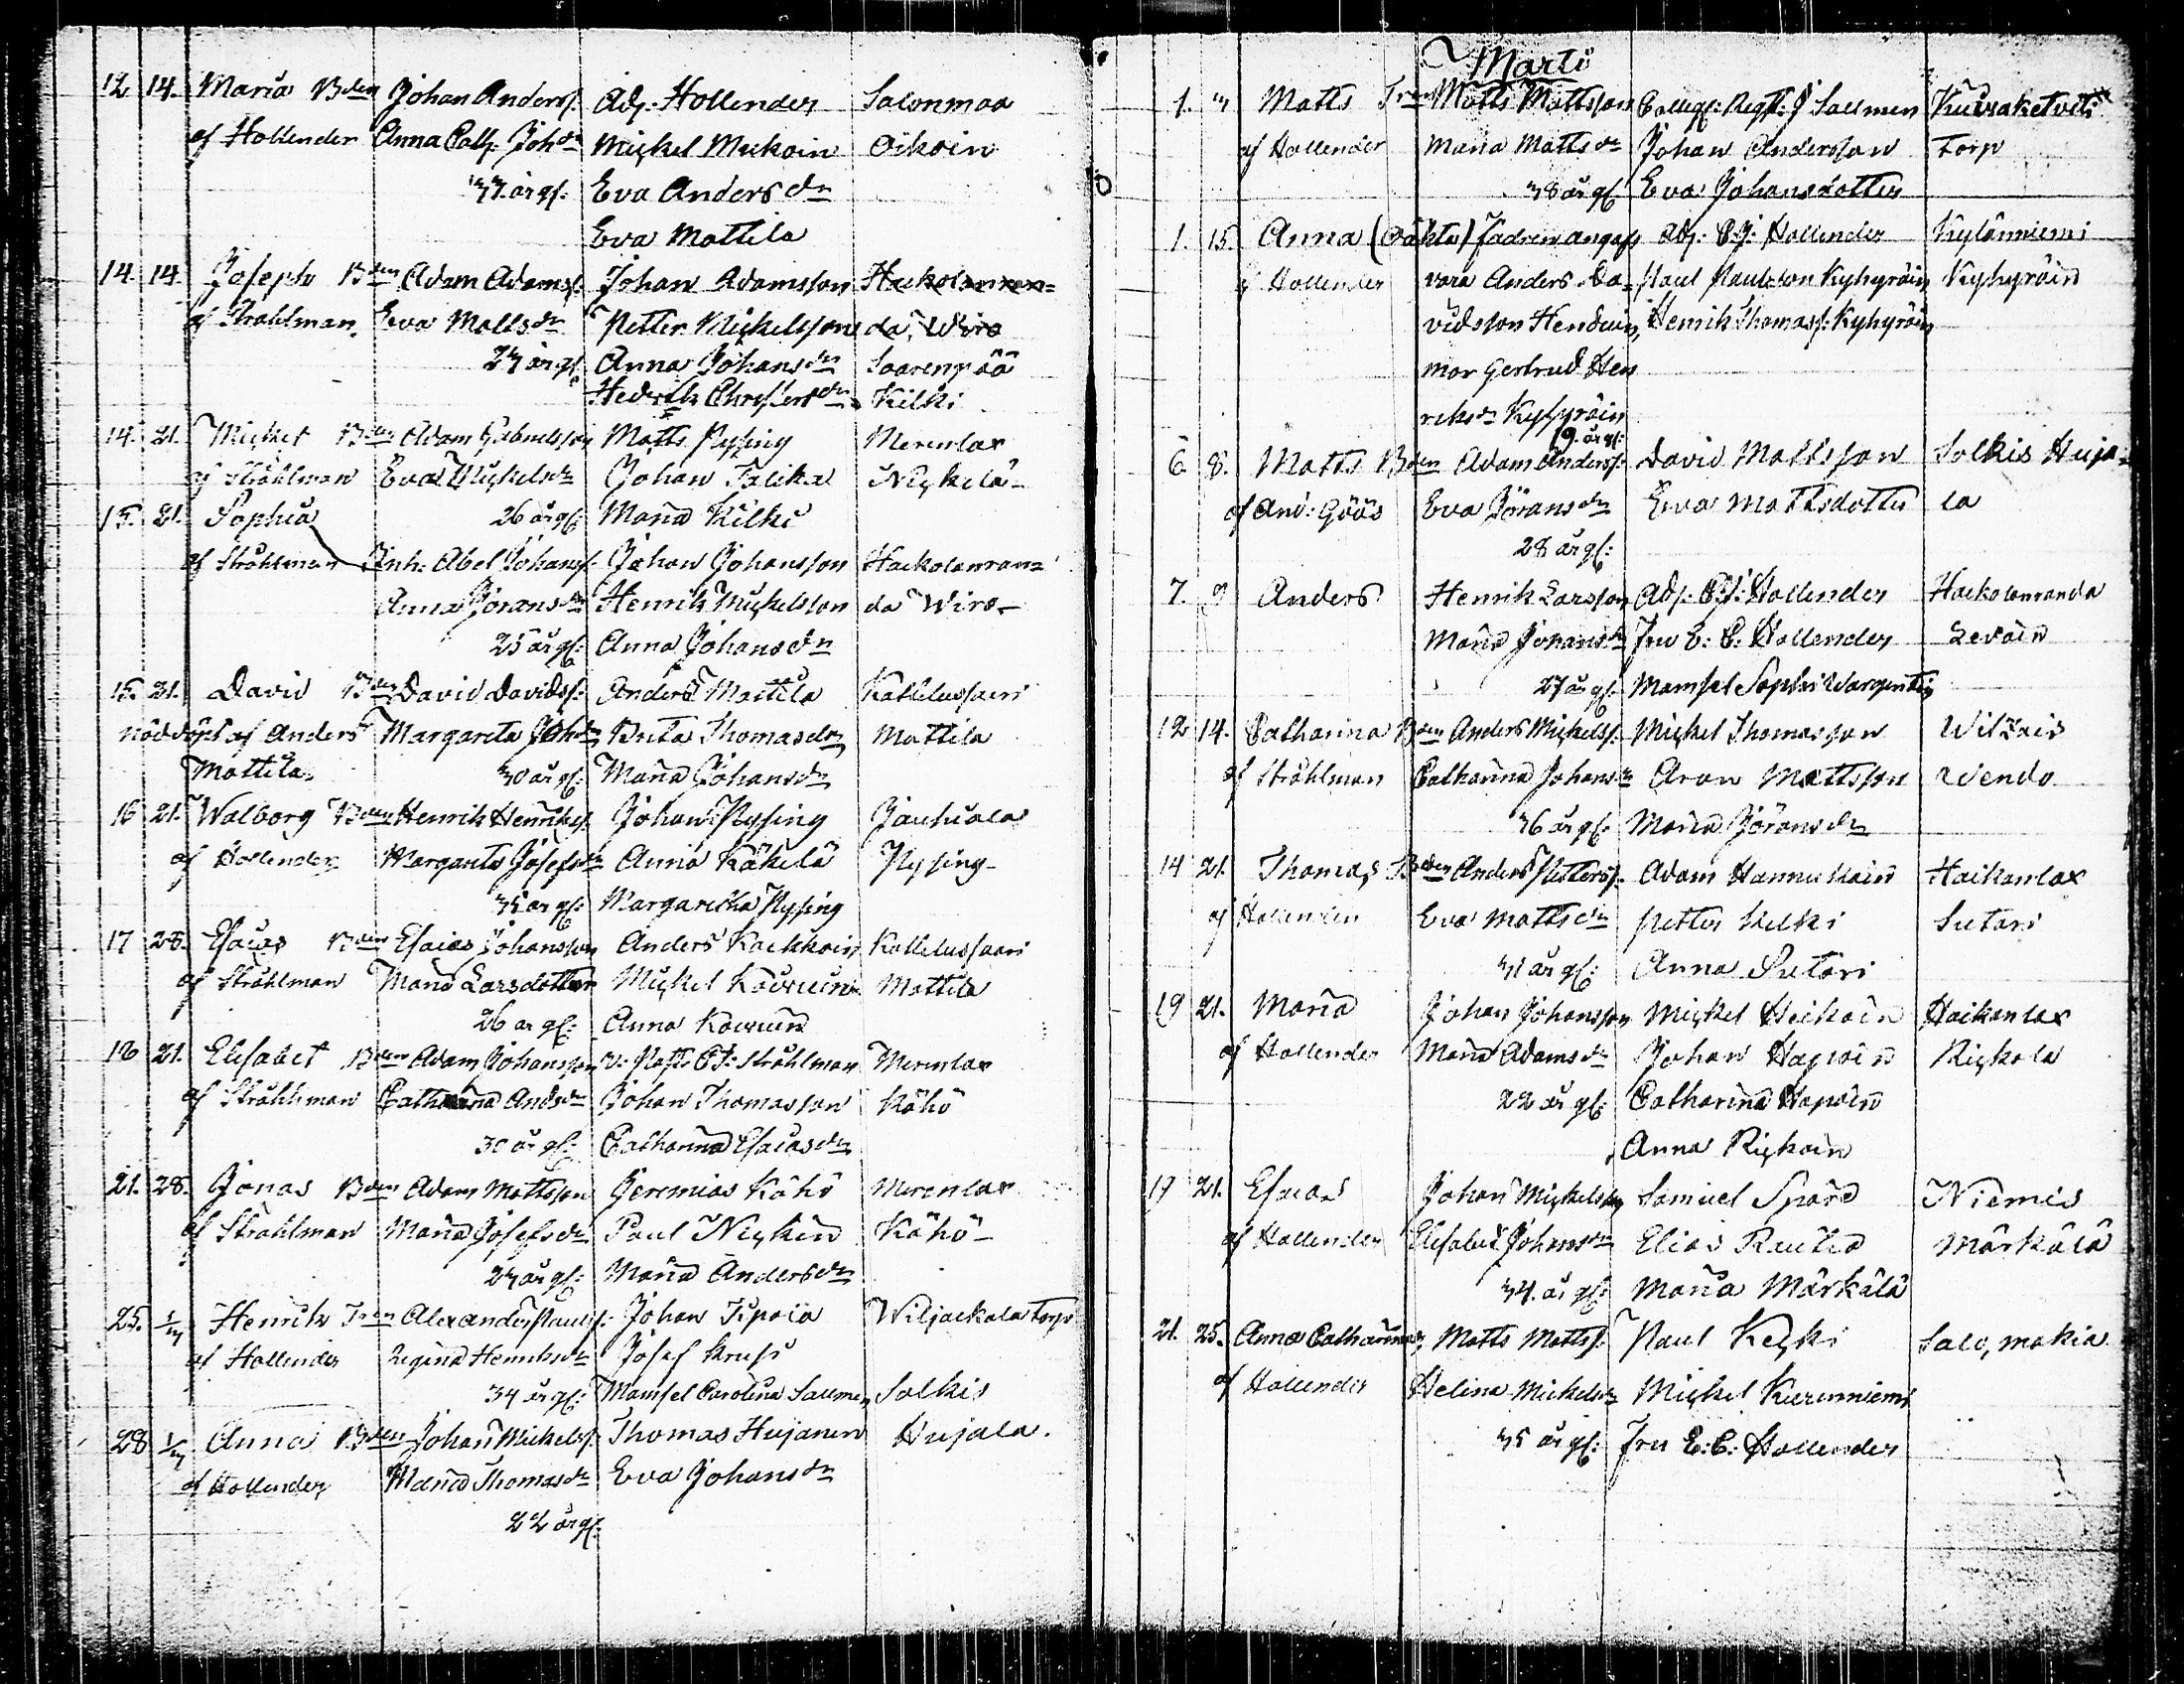 12 14. Maria Bden Johan Anders: Adj: Hollender Salonmaa
af Hollender Anna Cath: Johdr Michel Oikoin
37 år gl: Eva Andersdr
Eva Mattila
14. 14. Joseph Bden Adam Adams: Johan Adamsson Hackolanran=
af Stråhlman Eva Mattsdr Petter Michelsson da, Wiro
27 år gl: Anna Johansdr Saarenpää
Hedvik Kilki
14. 21. Michel Bden Adam Gabrielsson Matts Nysing Merenlax
af Stråhlman Eva Michelsdr Johan Talika
15. 21. Sophia 26 år gl: Maria Kilki
af Stråhlman Inh: Abel Johans: Johan Johansson Hackolanran=
Anna Göransdr Henrik Michelsson da Wiro
25 år gl: Anna Johansdr
15. 21. David Bden David Davids: Anders Mattila Kattelussaari
nöddöpt af Anders Margareta Johdr Brita Thomasdr Mattila
Mattila 30 år gl: Maria Johansdr
16 21. Walborg Bden Henrik Henriks: Johan Nysing Jauhiala
af Hollender Margareta Josefsdr Anna Käkelä Nysing
35 år gl: Margaretha Nysing
17 28. Esaias Bden Esaias Johansson Anders Kaekkoin Kattelussaari
af Stråhlman Maria Larsdotter Michel Mattila
26 år gl: Anna
18 21. Elisabet Bden Adam Johansson Stråhlman Merenlax
af Stråhlman Catharina Andsdr Johan Thomasson Kähö
30 år gl: Catharina Esaiasdr
21. 28. Jonas Bden Adam Mattsson Jeremias Kähö Merenlax
af Stråhlman Maria Josefsdr Paul Kähö
27 år gl: Maria Andersdr
25. 1/3 Henrik Tren Alexander Pauls: Johan Wiljackala torp
af Hollender Regina Henriksdr Josef Krufs
34 år gl: Mamsel Carolina Salmen Solkis
28 1/3 Anna Bden Johan Michels: Thomas Hujanen Hujala.
af Hollender Maria Thomasdr Eva Johansdr
22 år gl:
Marti
1. 3 Matts Tren Matts Mattsson Collegs: Regist: J Salmen
af Hollender Maria Mattsdr Johan Andersson Torp
38 år gl: Eva Johansdotter
1. 15. Anna (Oäkta) Fadren angafs Adj: C: J: Hollender Kylänniemi
af Hollender vara Anders Da= Paul Paulsson Kyhyräin Kyhyräin
vidsson Henduin, Henrik Thomass: Kyhyräin
mor Gertrud Hen
riksdr Kyhyräin
19. år gl:
6 8. Matts Bden Adam Anders: David Mattsson Solkis Huja=
af And: Göös Eva Göransdr Eva Mattsdotter la
28 år gl:
7. 9 Anders Henrik Larsson Adj: C: J: Hollender Hackolanranda
Maria Johansdr Fru E: C: Hollender Leväin
27 år gl: Mamsel Sophi Wargentin
12 14. Catharina Bden Anders Michels: Michel Thomasson
af Stråhlman Catharina Johansdr Aron Mattsson Wendo
36 år gl: Maria Göransdr
14 21. Thomas Bden Anders Petters: Adam Hannukain Haikanlax
af Hollender Eva Mattsdr Petter Kilki Sutari
31 år gl: Anna Sutari
19 21. Maria Johan Johansson Michel Heikoin Haikanlax
af Hollender Maria Adamsdr Johan Hapoin Rickola
22 år gl: Catharina Hapoin
Anna Rickoin
19 21. Esaias Johan Michelsson Samuel Spåre Niemis
af Hollender Elisabet Johansdr Elias Rautio Märkälä
34. år gl: Maria Märkälä
21. 25. Anna Catharina, Matts Matts: Paul Kecki Salo, makia
af Hollender Helena Michelsdr Michel Kurenniemi
35 år gl: Fru E: C: Hollender